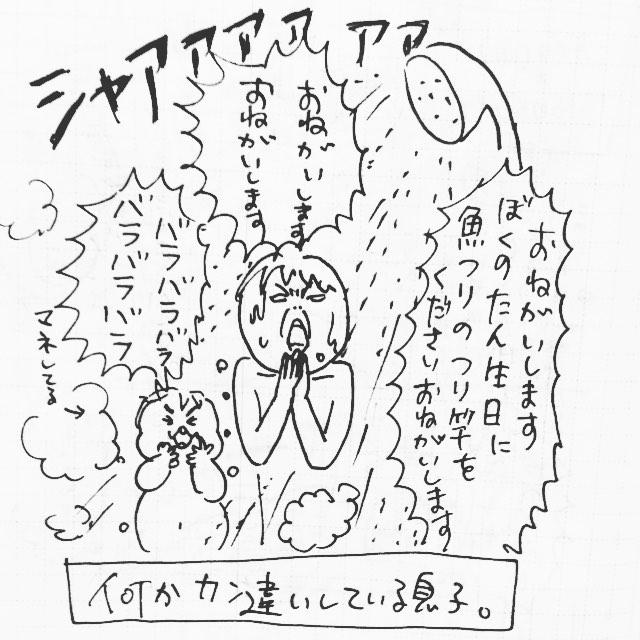 シャアアアアアア
おねがいします
ぼくのたん生日に
魚つりのつり竿を
くださいおねがいします
おねがいします
おねがいします
バラバラバラ
バラバラバラ
マネしてる
何かカン違いしている息子。